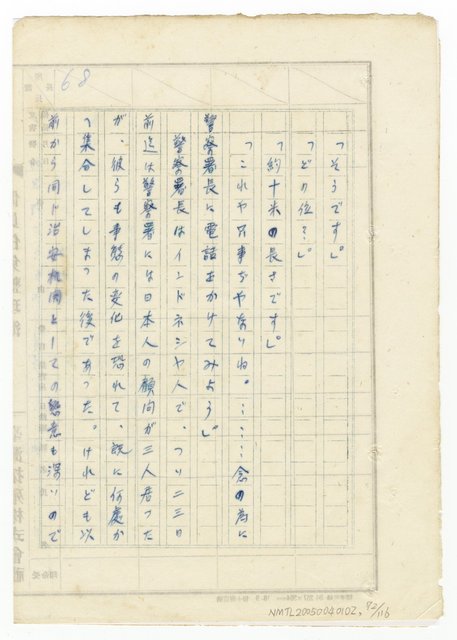 68
「そうです」
「どの位？」
「約十米の長さです」
「これや只事ぢやないね。……念の為に
警察署長に電話をかけてみよう」
警察署長はインドネシヤ人で、つい二三日
前迄は警察署には日本人の顧問が三人居つた
が、彼らも事態の変化を恐れて、既に何処か
へ集合してしまつた後であつた。けれども以
前から同じ治安機関としての懇意も深いので
NMTL20050040102, 72/116